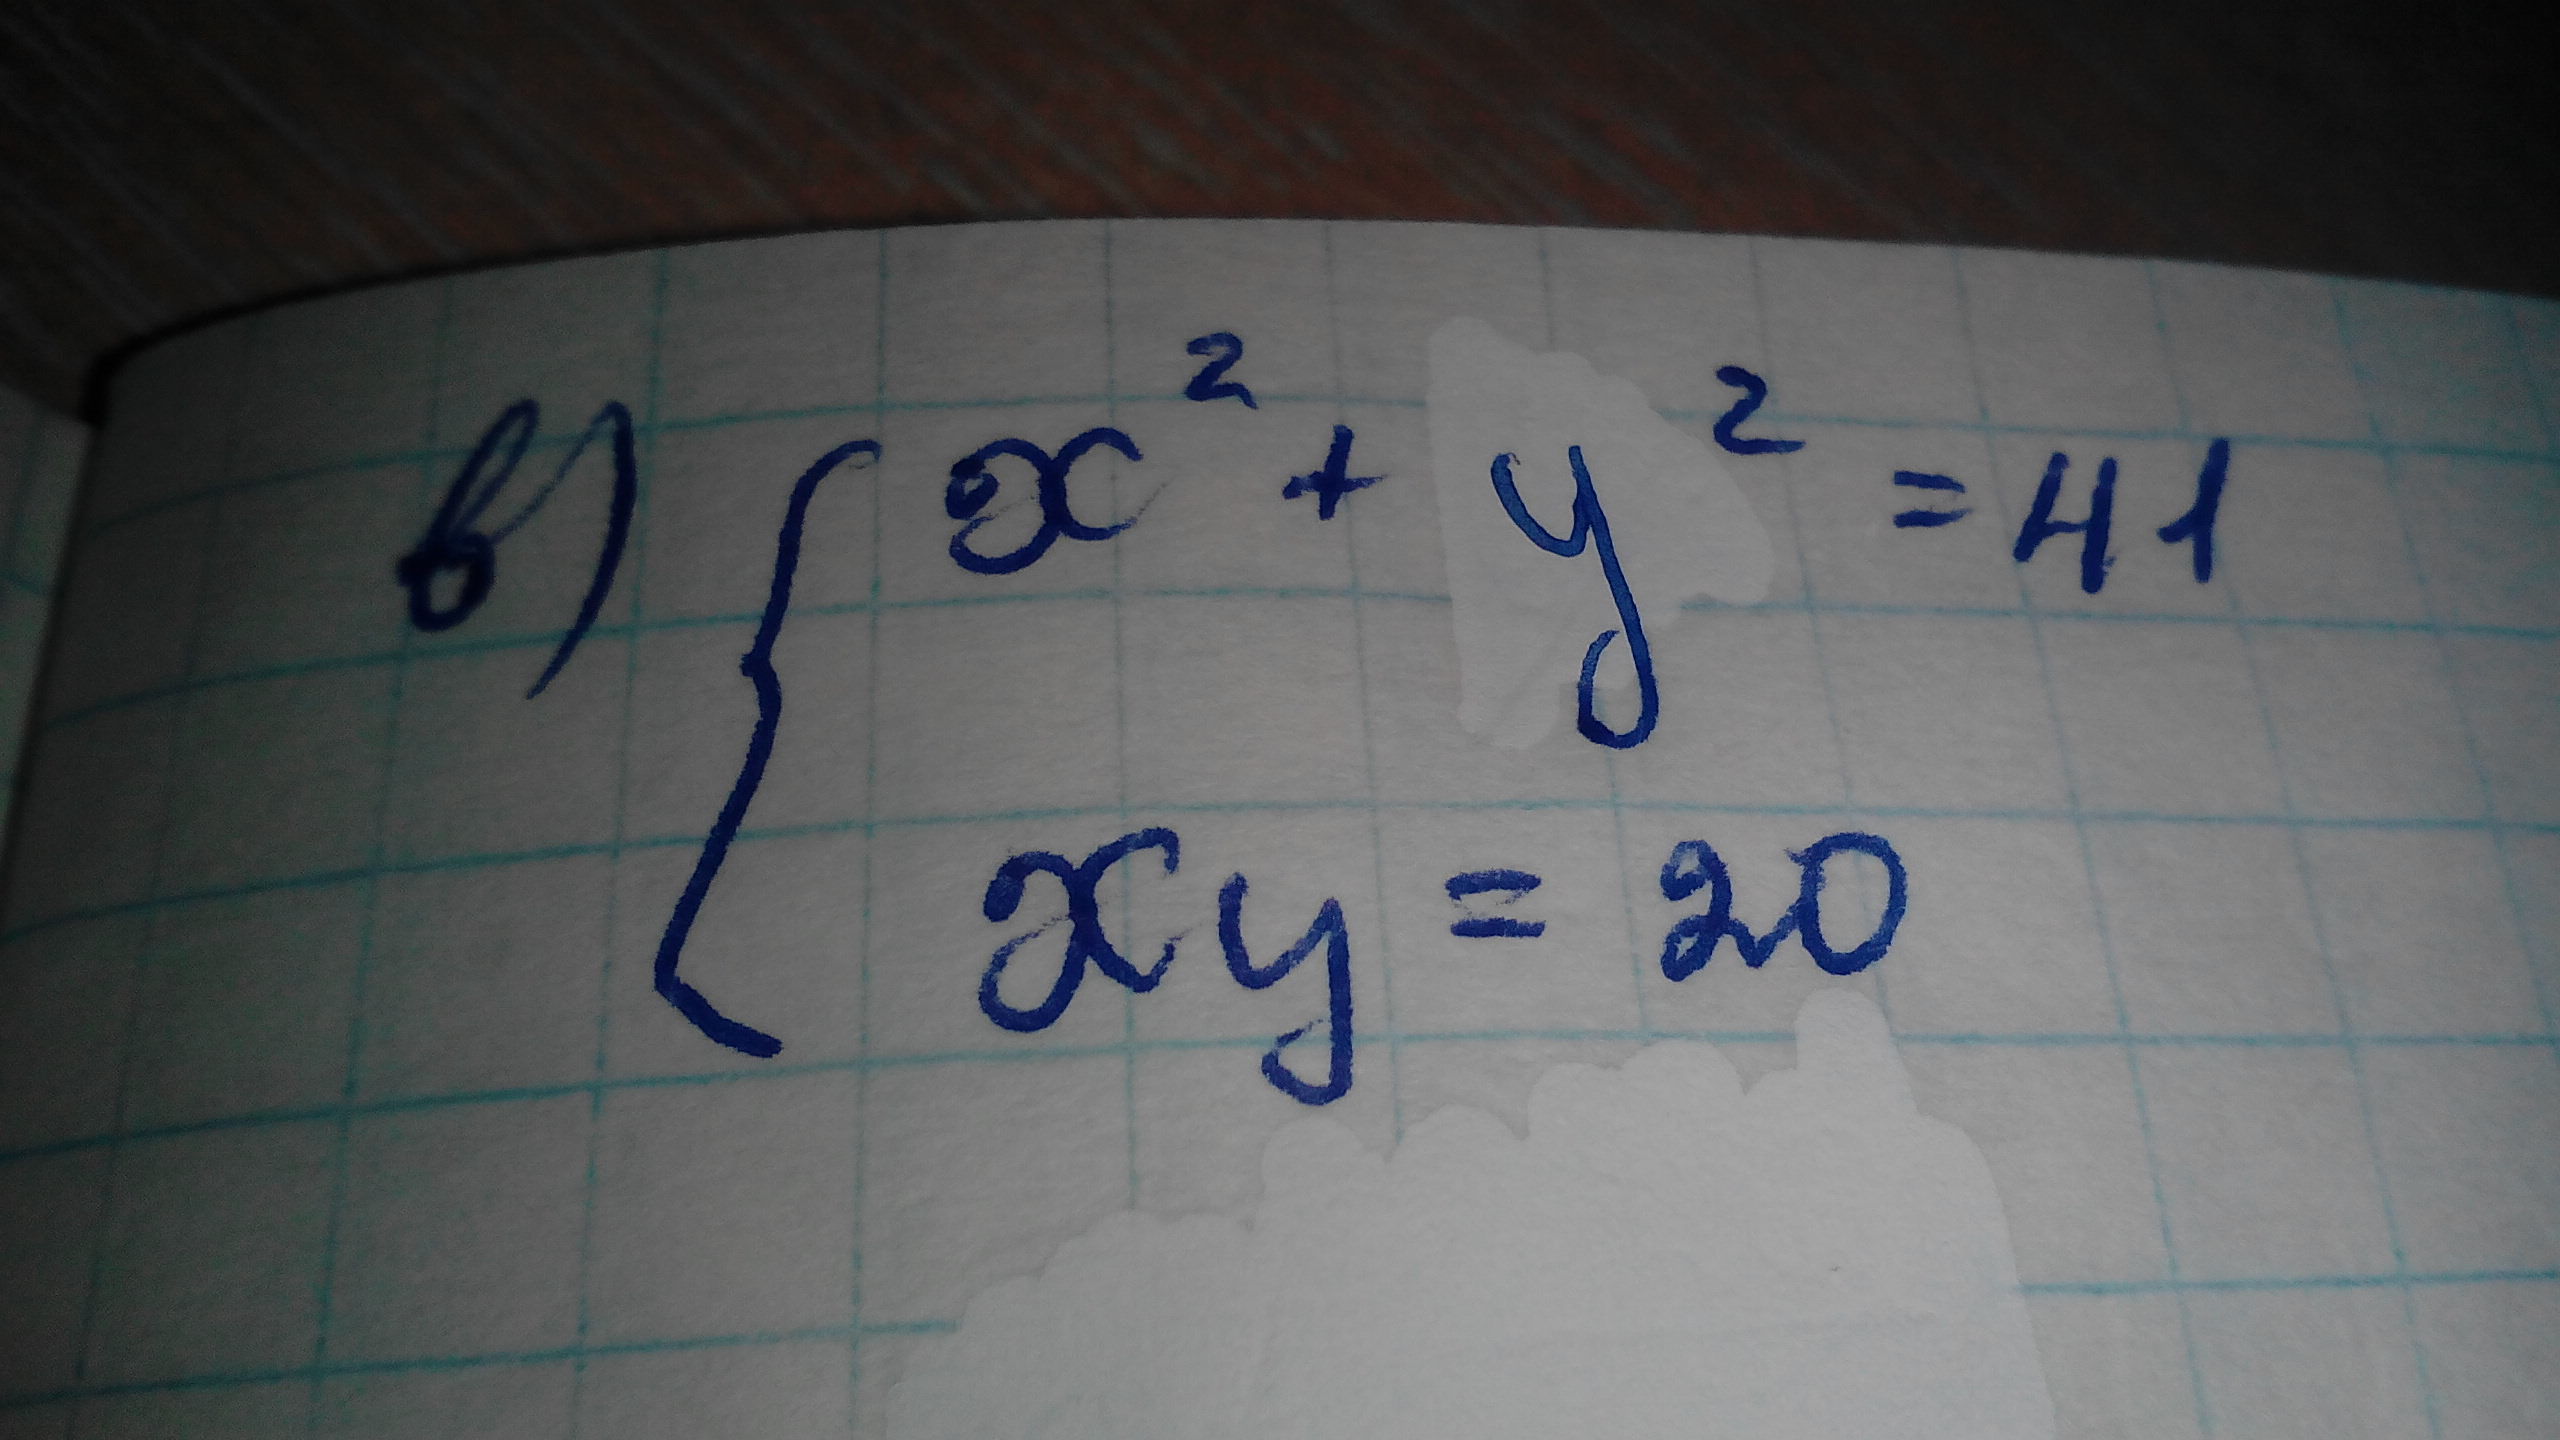 в) { x² + y² = 41
xy = 20